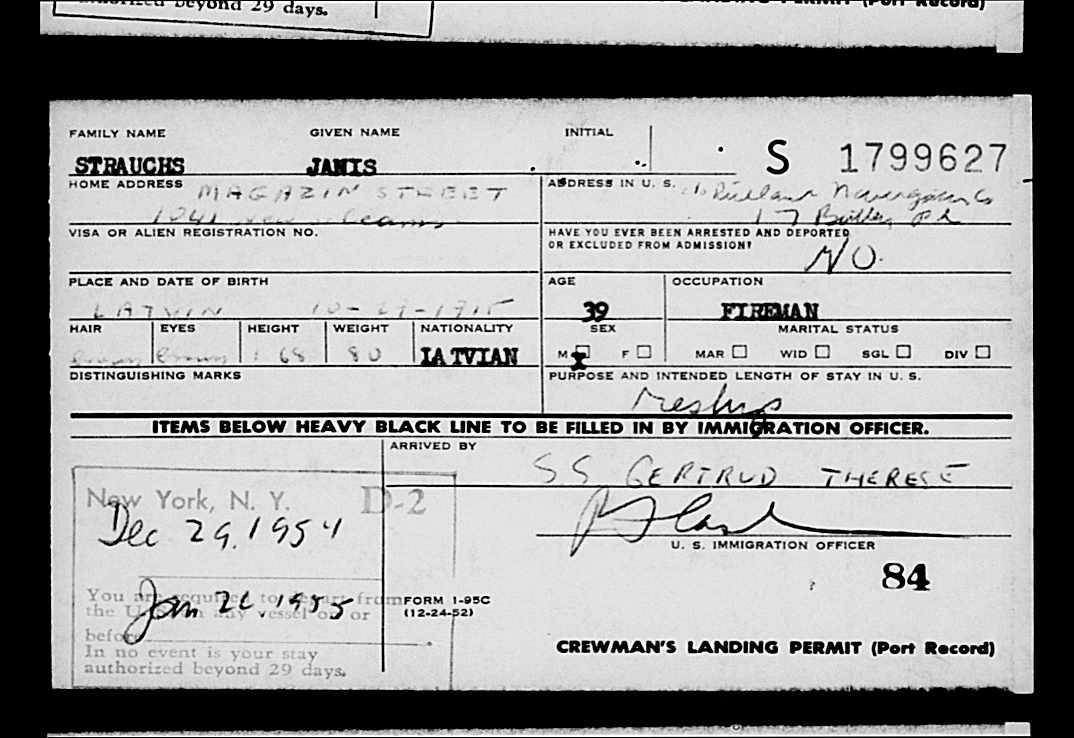 beyond 29 days.
LANDING PERMIT (Port Record)
FAMILY NAME GIVEN NAME INITIAL
STRAUCHS JANIS S 1799627
HOME ADDRESS MAGAZIN STREET ADDRESS IN U. S. c/o
1041 New Orleans 17
VISA OR ALIEN REGISTRATION NO. HAVE YOU EVER BEEN ARRESTED AND DEPORTED
OR EXCLUDED FROM ADMISSION?
NO.
PLACE AND DATE OF BIRTH AGE OCCUPATION
LATVIN 10-29-1915 39 FIREMAN
HAIR EYES HEIGHT WEIGHT NATIONALITY SEX MARITAL STATUS
Brown Brown 1 68 80 LATVIAN M X F MAR WID SGL DIV
DISTINGUISHING MARKS PURPOSE AND INTENDED LENGTH OF STAY IN U. S.
reship
ITEMS BELOW HEAVY BLACK LINE TO BE FILLED IN BY IMMIGRATION OFFICER.
ARRIVED BY
SS GERTRUD THERESE
New York, N. Y. D-2
Dec 29, 1954
U. S. IMMIGRATION OFFICER
84
You are required to depart from
the U. S. on any vessel on or
before
Jan 1955
In no event is your stay
authorized beyond 29 days.
FORM I-95C
(12-24-52)
CREWMAN'S LANDING PERMIT (Port Record)